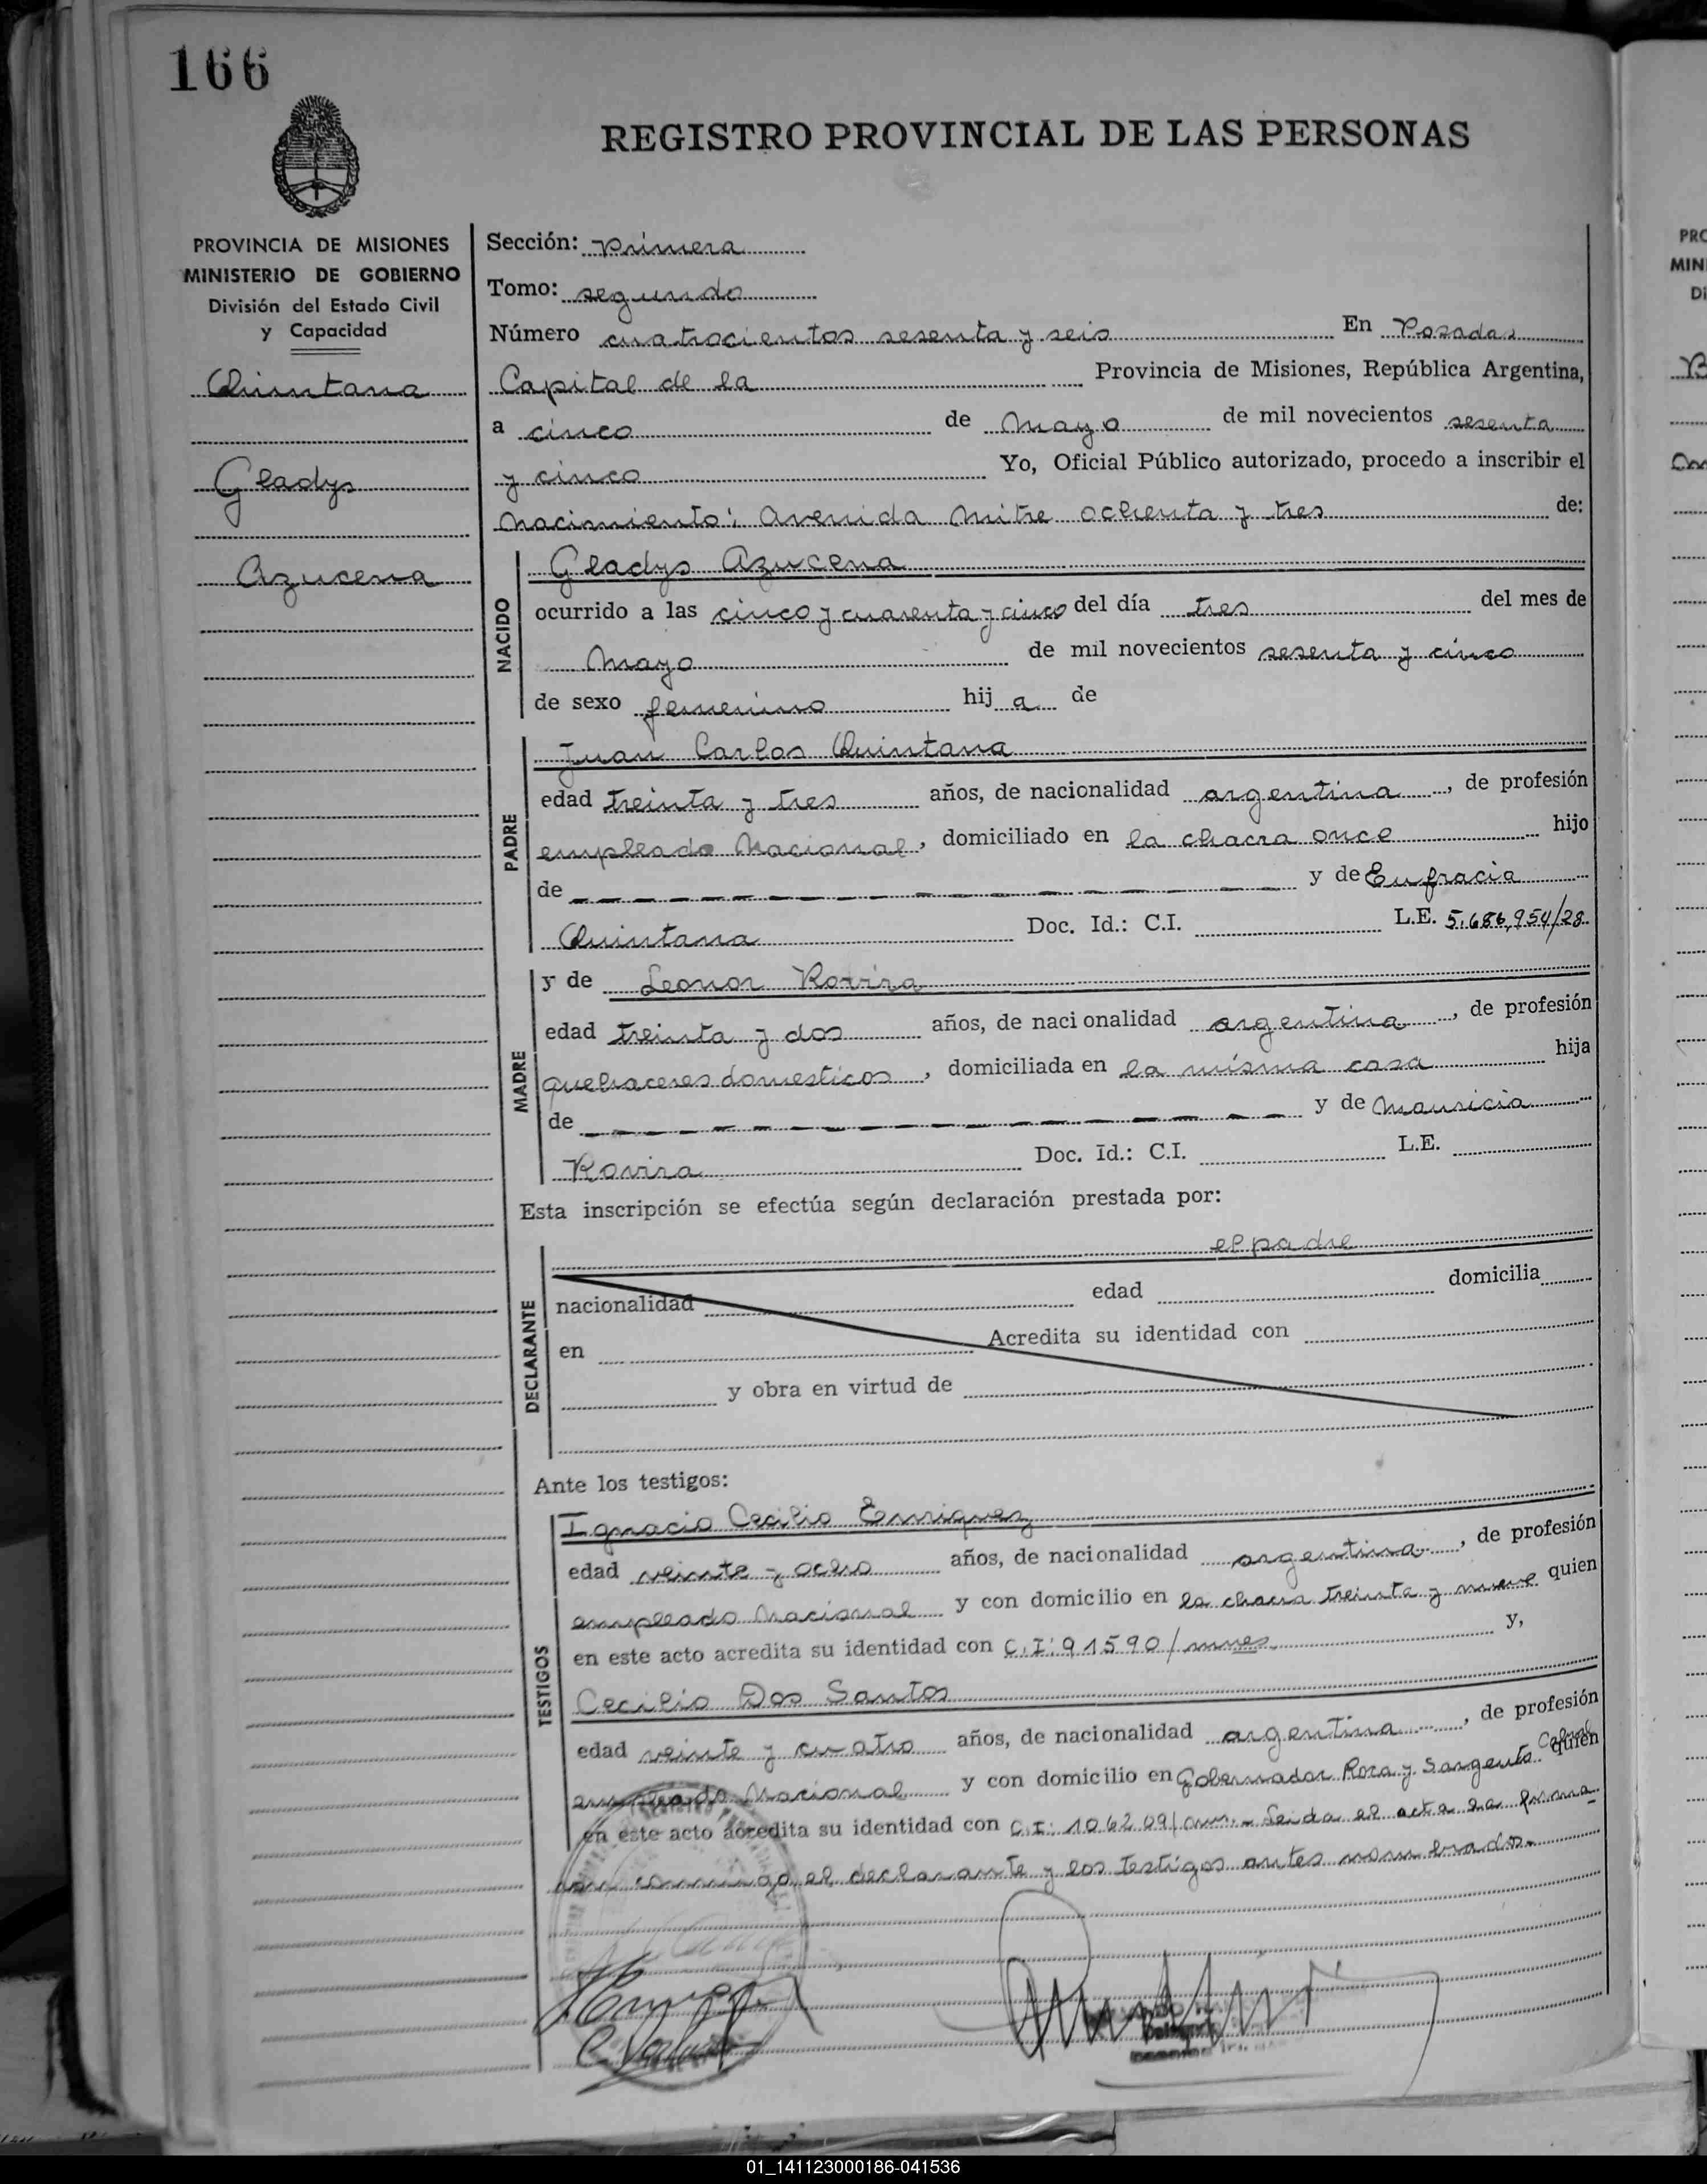 166
REGISTRO PROVINCIAL DE LAS PERSONAS
PROVINCIA DE MISIONES
MINISTERIO DE GOBIERNO
División del Estado Civil
y Capacidad
Quintana
Gladys
Azucena
Sección: Primera
Tomo: segundo
Número cuatrocientos sesenta y seis En Posadas
Capital de la Provincia de Misiones, República Argentina,
a cinco de Mayo de mil novecientos sesenta
y cinco Yo, Oficial Público autorizado, procedo a inscribir el
Nacimiento: Avenida Mitre ochenta y tres de:
NACIDO
Gladys Azucena
ocurrido a las cinco y cuarenta y cinco del día tres del mes de
Mayo de mil novecientos sesenta y cinco
de sexo femenino hij a de
PADRE
Juan Carlos Quintana
edad treinta y tres años, de nacionalidad argentina, de profesión
empleado Nacional, domiciliado en la chacra once hijo
de — — — — — — — — — — y de Eufracia
Quintana Doc. Id.: C.I. L.E. 5.686.954/28.
MADRE
y de Leonor Rovira
edad treinta y dos años, de nacionalidad argentina, de profesión
quehaceres domesticos, domiciliada en la misma casa hija
de — — — — — — — — — — y de Mauricia
Rovira Doc. Id.: C.I. L.E.
Esta inscripción se efectúa según declaración prestada por:
DECLARANTE
el padre
nacionalidad edad domicilia
en Acredita su identidad con
y obra en virtud de
Ante los testigos:
TESTIGOS
Ignacio Cecilio Enriquez
edad veinte y ocho años, de nacionalidad argentina, de profesión
empleado Nacional y con domicilio en la chacra treinta y nueve quien
en este acto acredita su identidad con C.I: 91590/mnes y,
Cecilio Dos Santos
edad veinte y cuatro años, de nacionalidad argentina, de profesión
empleado Nacional y con domicilio en Gobernador Roca y Sargento Cabral quien
en este acto acredita su identidad con C.I: 106209/ - Leida el acta la firma
con conmigo el declarante y los testigos antes nombrados.
01_141123000186-041536